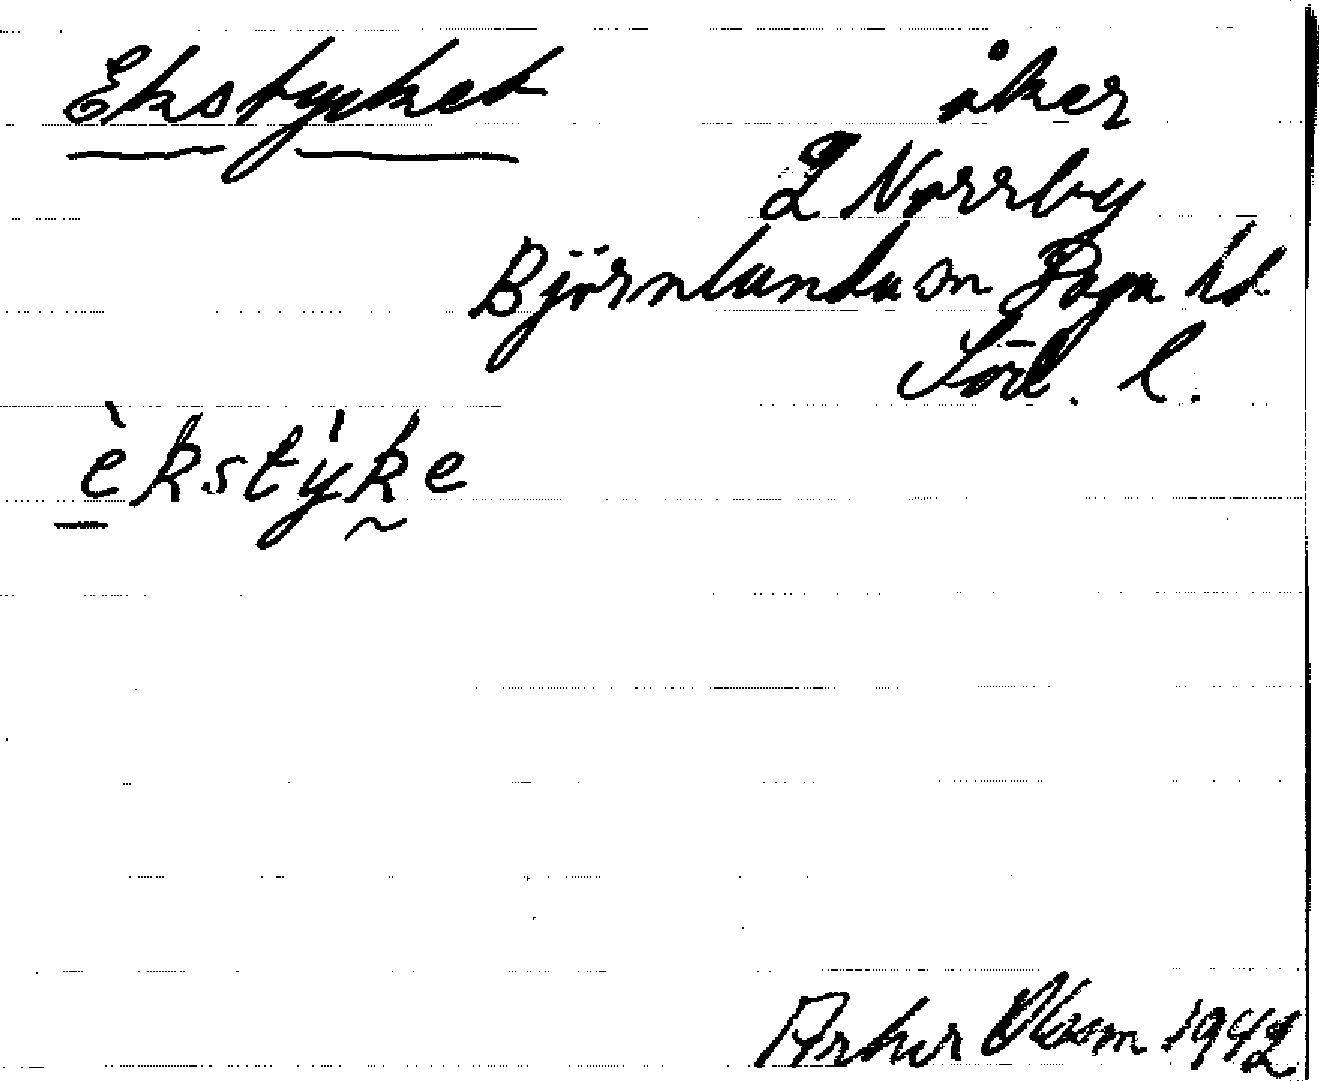 Ekstycket åker
2 Norrby
Björnlunda sn Daga hd
Södl. l.
èkstỳke
Arthur Olsson 1942